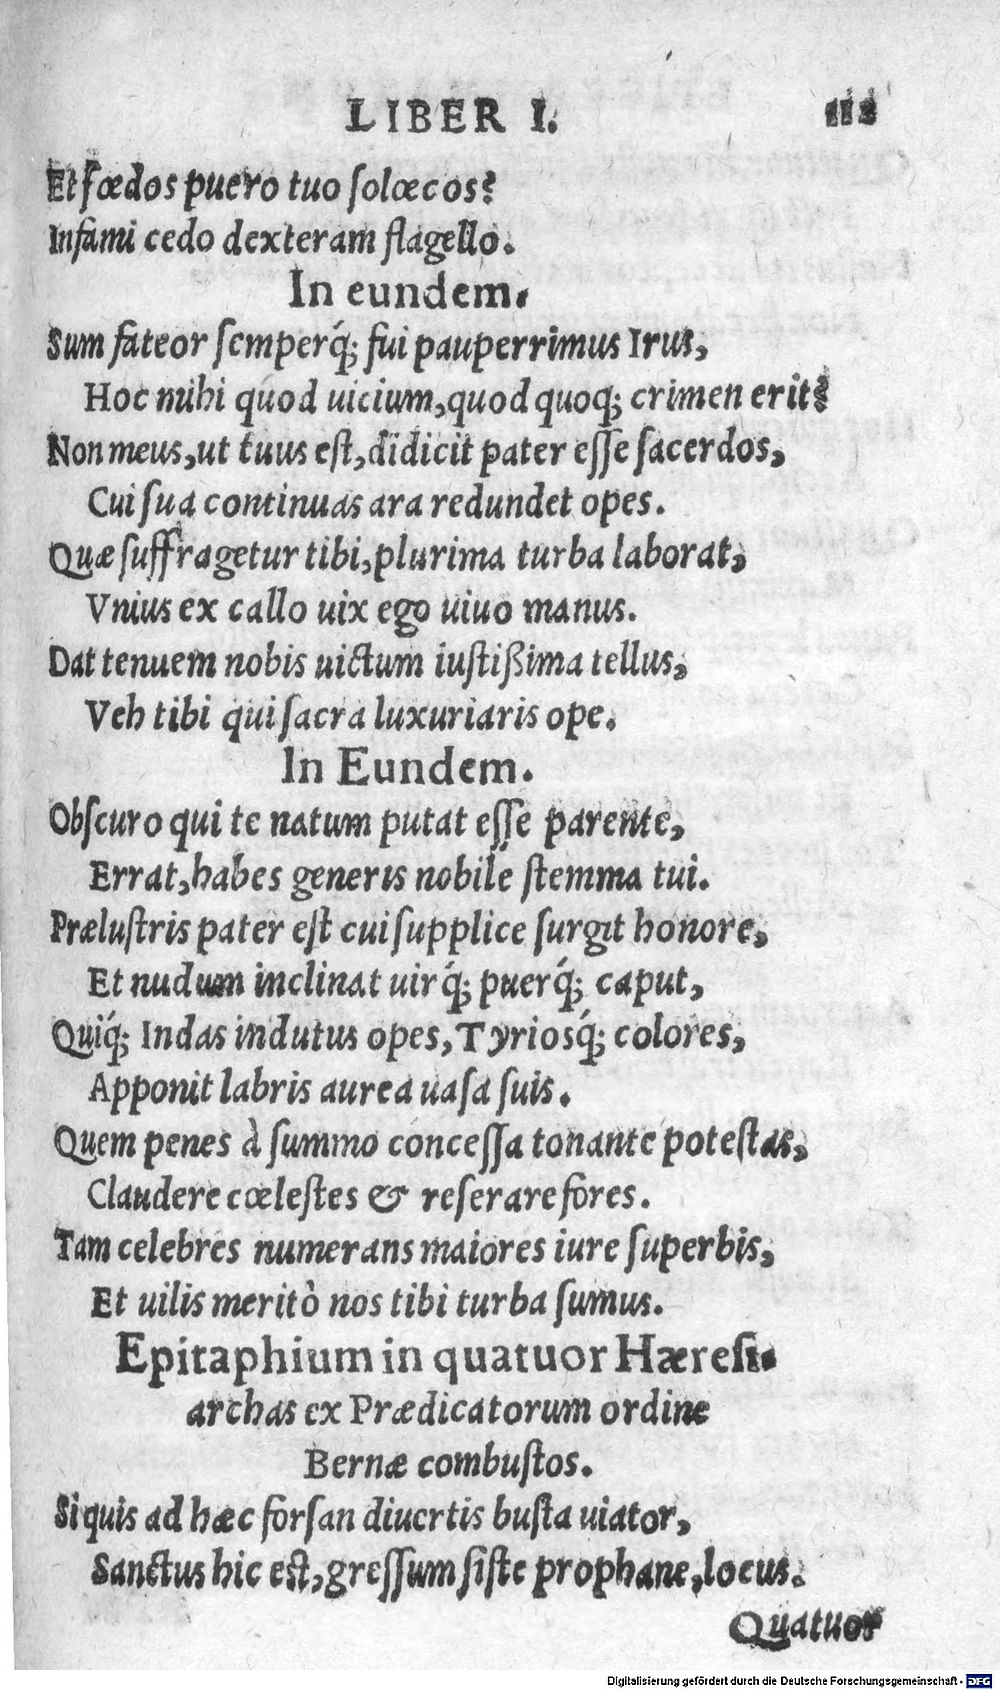 LIBER I.
Et fœdos puero tuo solœcos?
Infami cedo dexteram flagello.
In eundem.
Sum fateor semperq́; fui pauperrimus Irus,
Hoc mihi quod uicium, quod quoq; crimen erit?
Non meus, ut tuus est, didicit pater esse sacerdos,
Cui sua continuas ara redundet opes.
Quæ suffragetur tibi, plurima turba laborat,
Vnius ex callo uix ego uiuo manus.
Dat tenuem nobis uictum iustißima tellus,
Veh tibi qui sacra luxuriaris ope.
In Eundem.
Obscuro qui te natum putat esse parente,
Errat, habes generis nobile stemma tui.
Prælustris pater est cui supplice surgit honore,
Et nudum inclinat uirq́; puerq́; caput,
Quiq́; Indas indutus opes, Tyriosq́; colores,
Apponit labris aurea uasa suis.
Quem penes à summo concessa tonante potestas,
Claudere cœlestes & reserare fores.
Tam celebres numerans maiores iure superbis,
Et uilis meritò nos tibi turba sumus.
Epitaphium in quatuor Hæresi-
archas ex Prædicatorum ordine
Bernæ combustos.
Si quis ad hæc forsan diuertis busta uiator,
Sanctus hic est, gressum siste prophane, locus.
Quatuor
Digitalisierung gefördert durch die Deutsche Forschungsgemeinschaft - DFG